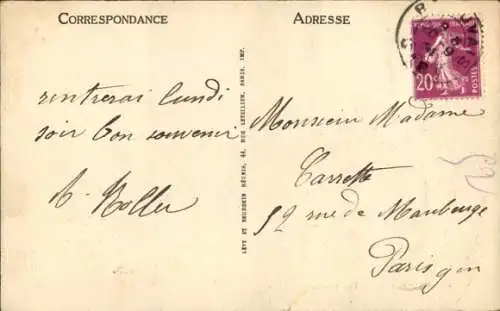 CORRESPONDANCE
ADRESSE
20
POSTES
rentrerai lundi
soir bon souvenir
LÉVY ET NEURDEIN RÉUNIS, 44, RUE LETELLIER, PARIS. IMP.
Monsieur Madame
Carrette
52 rue de Maubeuge
Paris